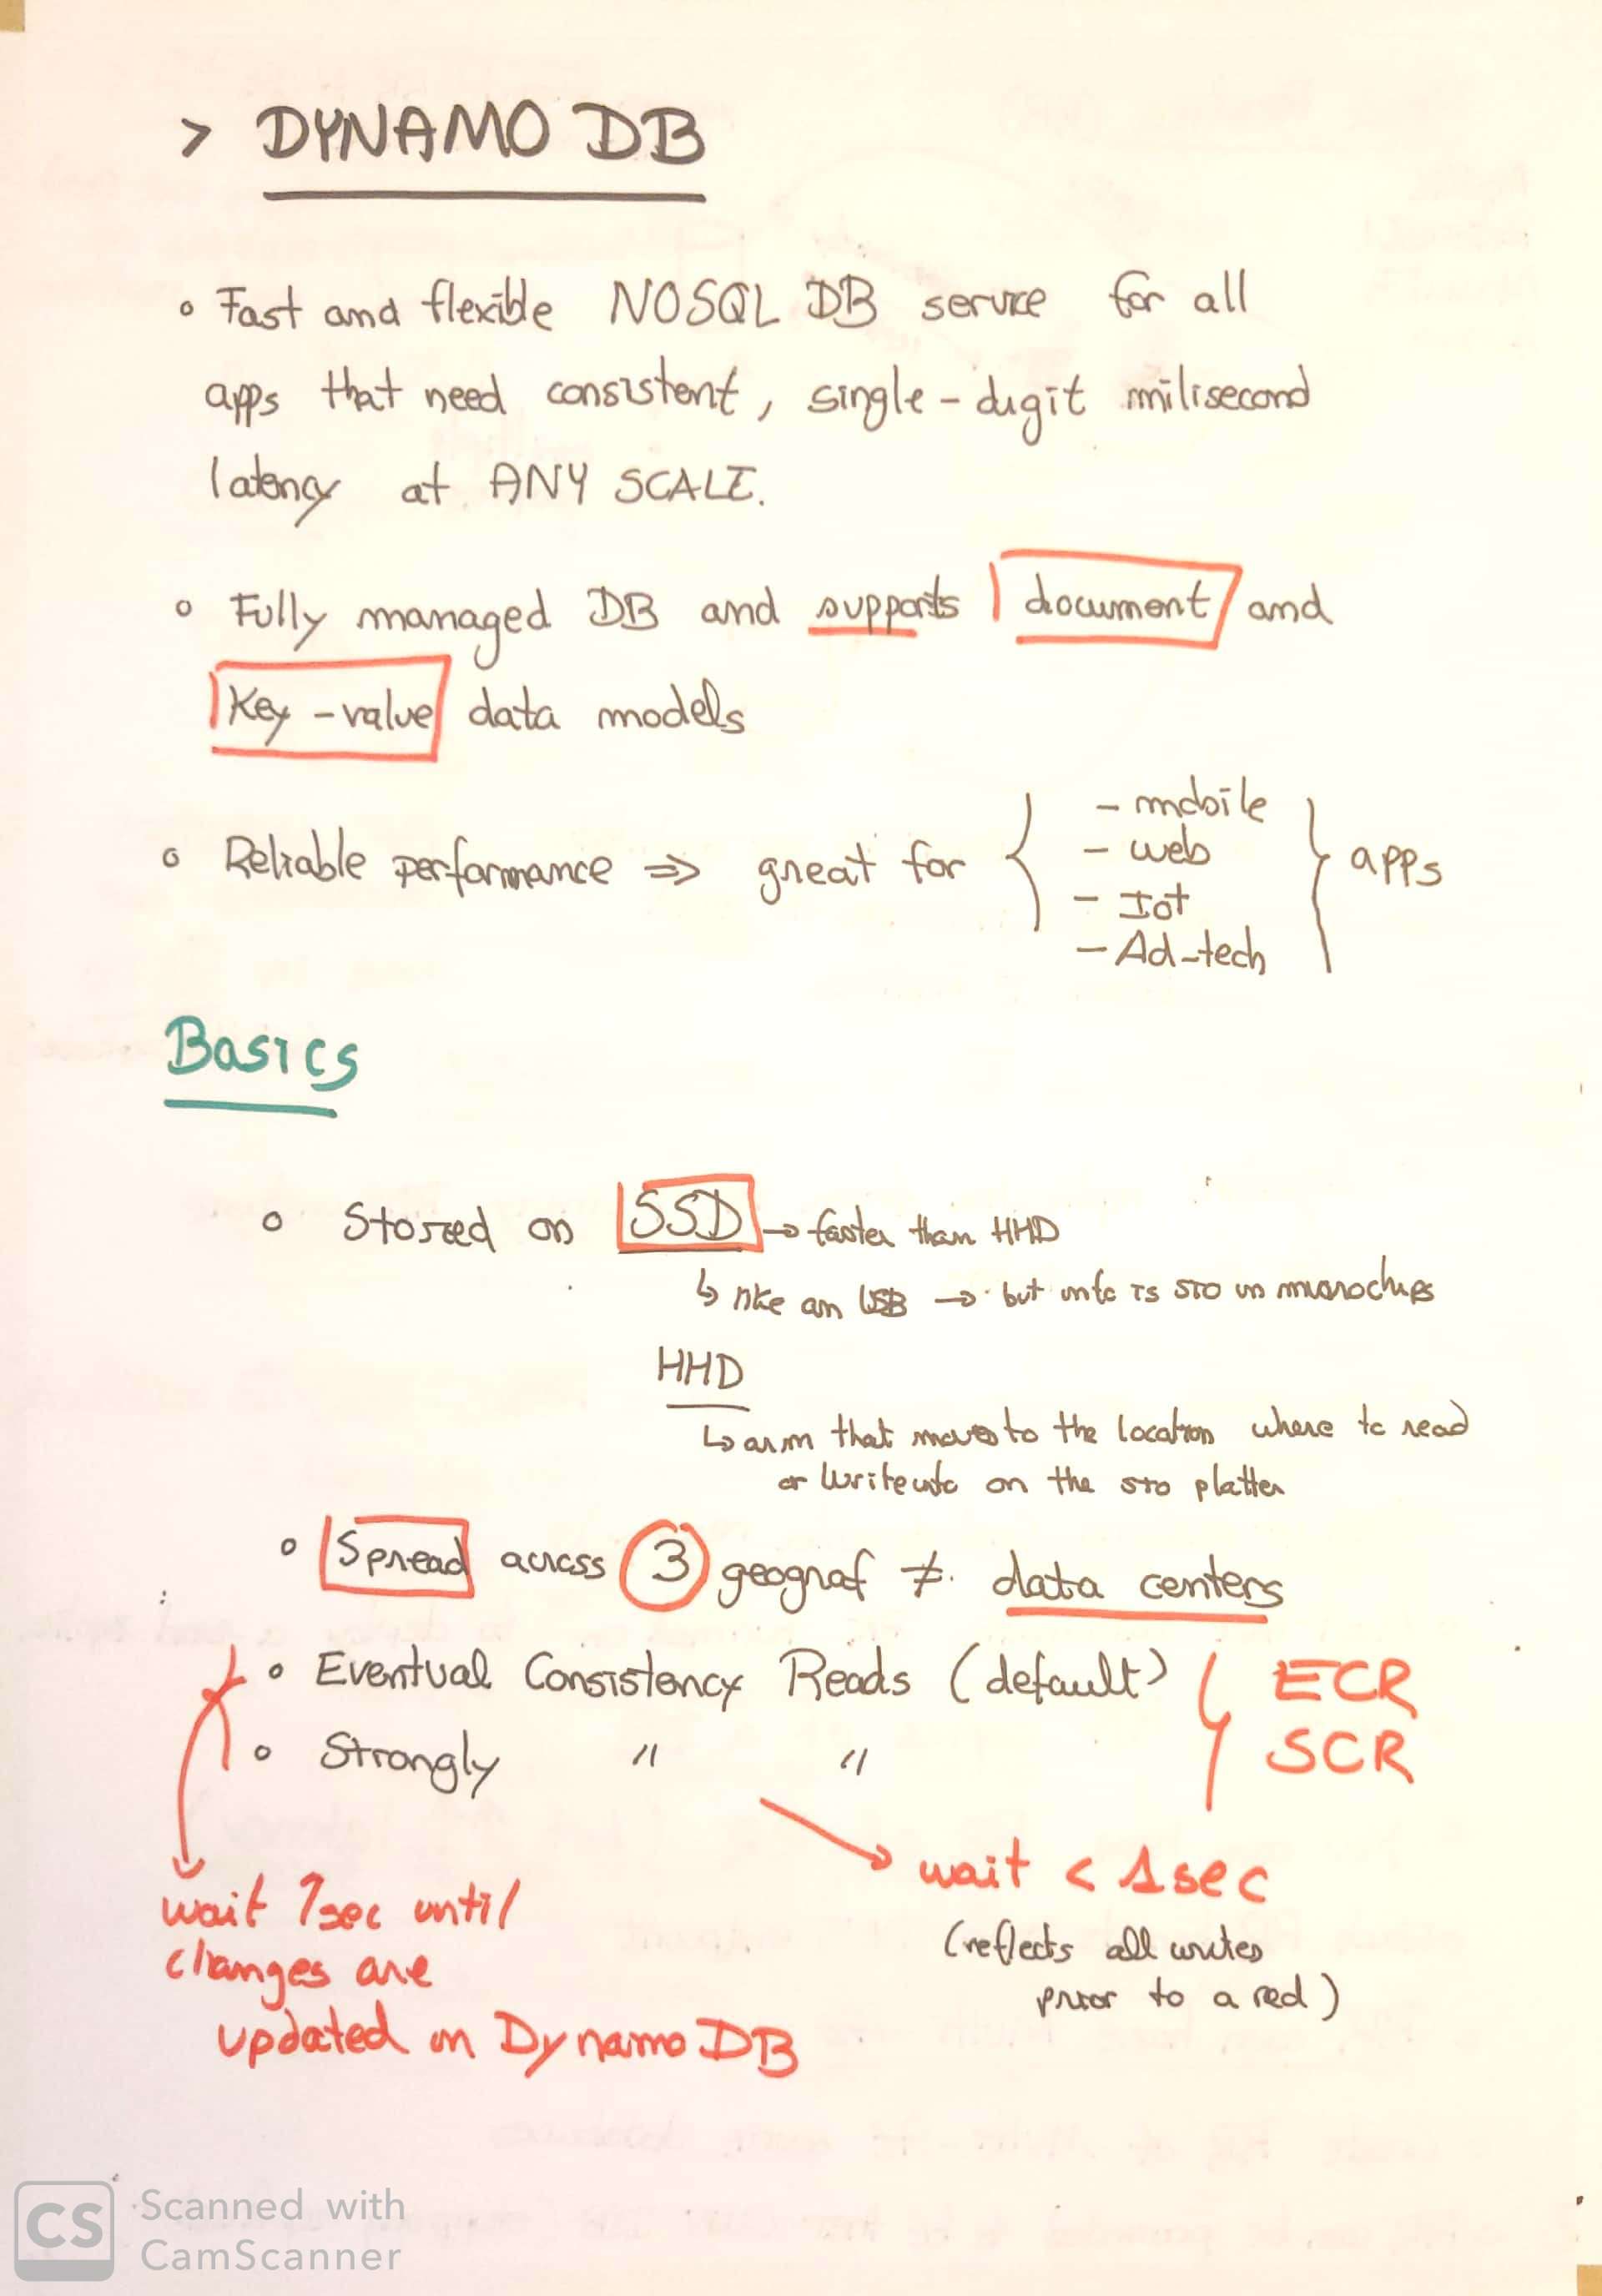 > DYNAMO DB
Fast and flexible NOSQL DB service for all
apps that need consistent, single-digit milisecond
latency at ANY SCALE.
Fully managed DB and supports document and
Key-value data models
Reliable performance => great for
- mobile
- web
- Iot
- Ad-tech
apps
Basics
Stored on SSD → faster than HHD
↳ like an USB → but info is STO in microchips
HHD
↳ arm that moves to the location where to read
or write info on the STO platter
Spread across 3 geograf ≠ data centers
Eventual Consistency Reads (default)
Strongly " "
ECR
SCR
wait 1sec until
changes are
updated on Dynamo DB
wait < 1sec
(reflects all writes
prior to a red)
CS Scanned with
CamScanner